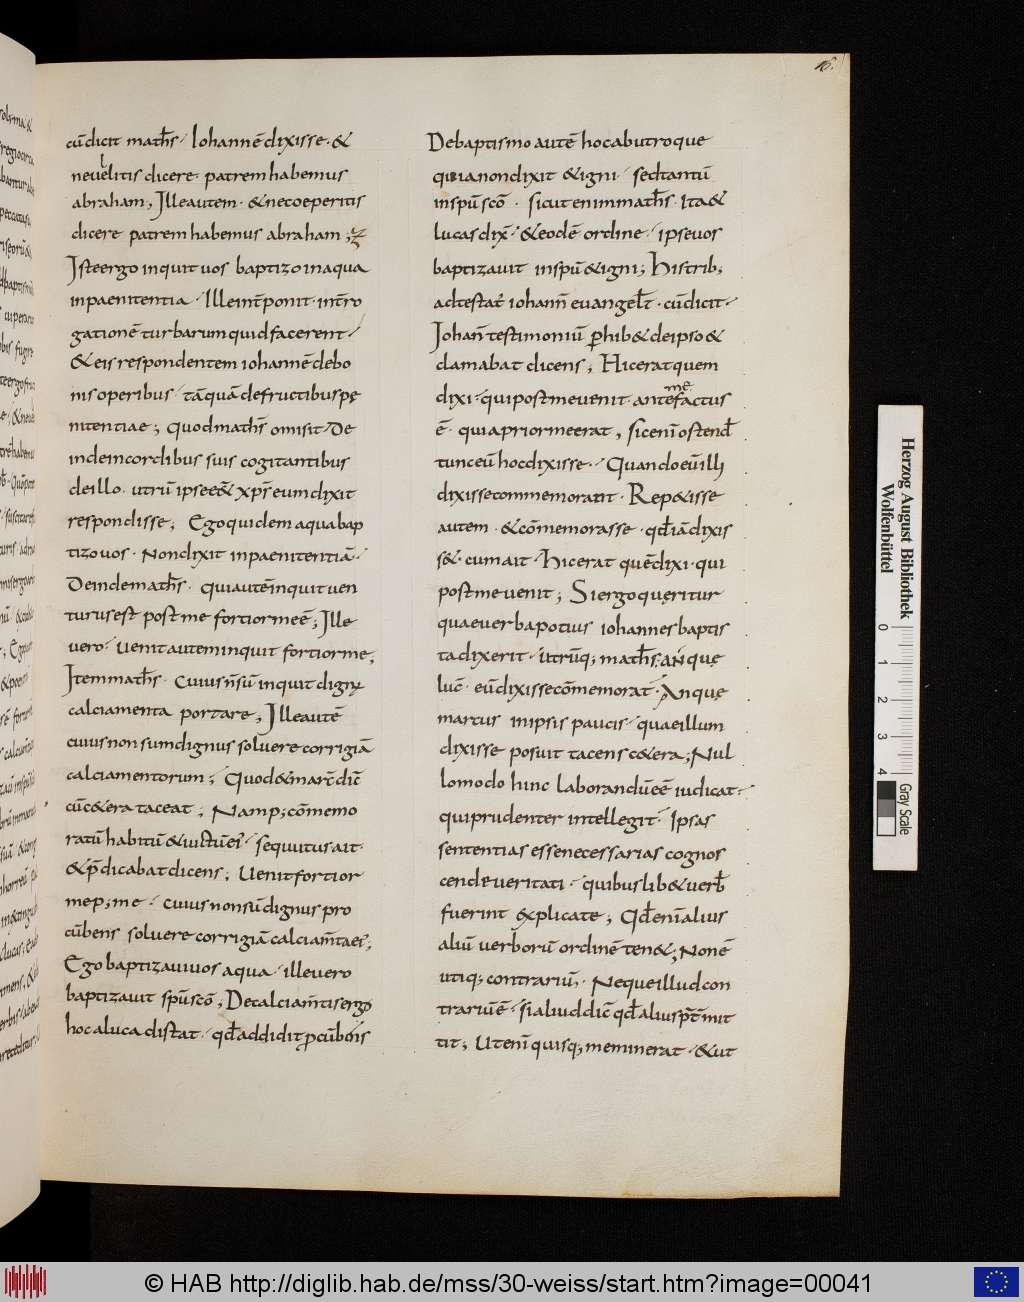 16.
cūdicit math̄s · Iohannēdixisse · &
nevelitis dicere · patremhabemus
abraham, Illeautem · &necoeperitis
dicere patremhabemus abraham ;
Isteergo inquit uos baptizo inaqua
inpaenitentia · Illeint̄ponit · int̄ro
gationē turbarumquidfacerent ·
&eis respondentem iohannēdebo
nis operibus · tāquādefructibuspę
nitentiae ; Quodmath̄s omisit · De
indeincordibus suis cogitantibus
deillo · utrū ipsee& xp̄s eumdixit
respondisse ; Egoquidem aquabap
tizouos · Nondixit inpaenitentiā ·
Deindemath̄s · quiautēinquit uen
turusest post me fortiormeē ; Ille
uero · uenit auteminquit fortiorme ;
Item math̄s · cuius n̄sū inquit dignus
calciamenta portare , Illeautē
cuiusnon sumdignus soluere corrigiā
calciamentorum ; Quod&marc̄ dic̄
cūc&era taceat ; Namp; cōmemo
ratū habitū &iuictūei · sequitusait ·
&p̄dicabat dicens ; Uenit fortior
mep; me · cuius nonsūdignus pro
cūbens soluere corrigiā calciam̄taei ;
Ego baptizauiuos aqua · illeuero
baptizauit sp̄uscō ; Decalciam̄tisergo
hoc aluca distat · qd̄addidit p̄cūbens
Debaptismo autē hocabutroque
quianondixit &igni · sedtantū
insp̄u scō · sicut enim math̄s · Ita&
lucasdix̄ · &eodē ordine · ipseuos
baptizauit insp̄u &igni ; Histrib;
adtestat̄ iohann̄ euangel̄t · cūdicit ·
Iohan̄ testimoniū p̄hib& deipso&
clamabat dicens ; Hiceratquem
dixi · qui postmeuenit · antemefactus
ē · quiapriormeerat , sicenī ostend̄
tunceū hocdixisse · Quandoeūilli
dixissecommemorant · Rep&isse
autem · &cōmemorasse · qd̄iādixis
s& · cumait · Hicerat quēdixi · qui
postmeuenit ; Siergoquęritur
quaeuerbapotius iohannesbaptis
tadixerit · utrūq; math̄s · an quę
luc̄ · eūdixissecōmemorat · An quę
marcus inipsis paucis · quaeillum
dixisse posuit tacensc&era ; Nul
lomodo hinc laborandūeē iudicat ·
quiprudenter intellegit · Ipsas
sententias essenecessarias cognos
cendęueritati · quibuslib&uerb̄
fuerint explicate ; Qd̄enīalius
aliū uerborū ordinē ten& ; Nonē
utiq; contrariū · Nequeilludcon
trariūē · si aliuddic̄ qd̄aliusp̄t̄mit
tit ; Utenī quisq; meminerat · &ut
Herzog August Bibliothek
Wolfenbüttel
0 1 2 3 4
Gray Scale
© HAB http://diglib.hab.de/mss/30-weiss/start.htm?image=00041